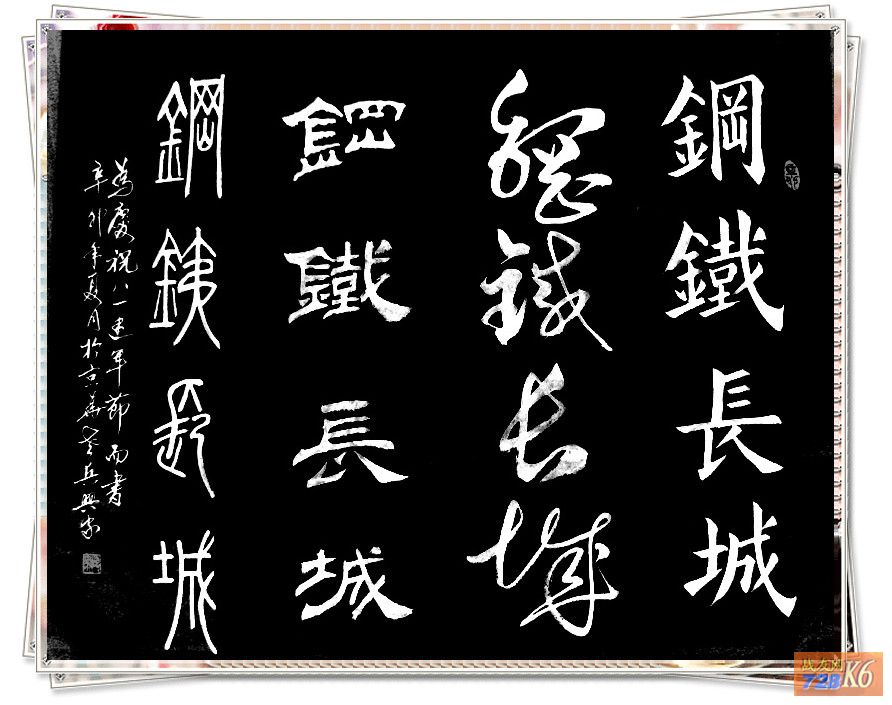 鋼鐵長城
鋼鐵长城
鋼鐵長城
鋼鐵長城
為慶祝八一建軍節而書
辛卯年夏月於京華老兵興家
战友网
728 K6